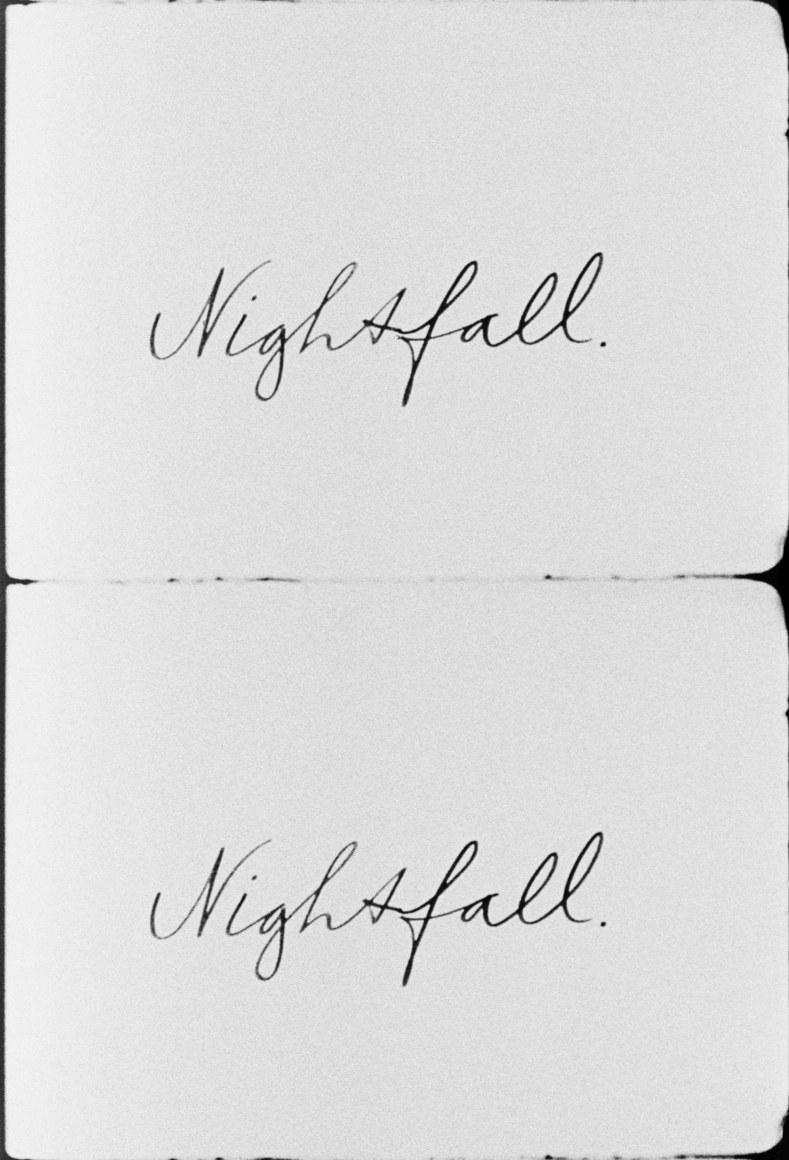 Nightfall.
Nightfall.